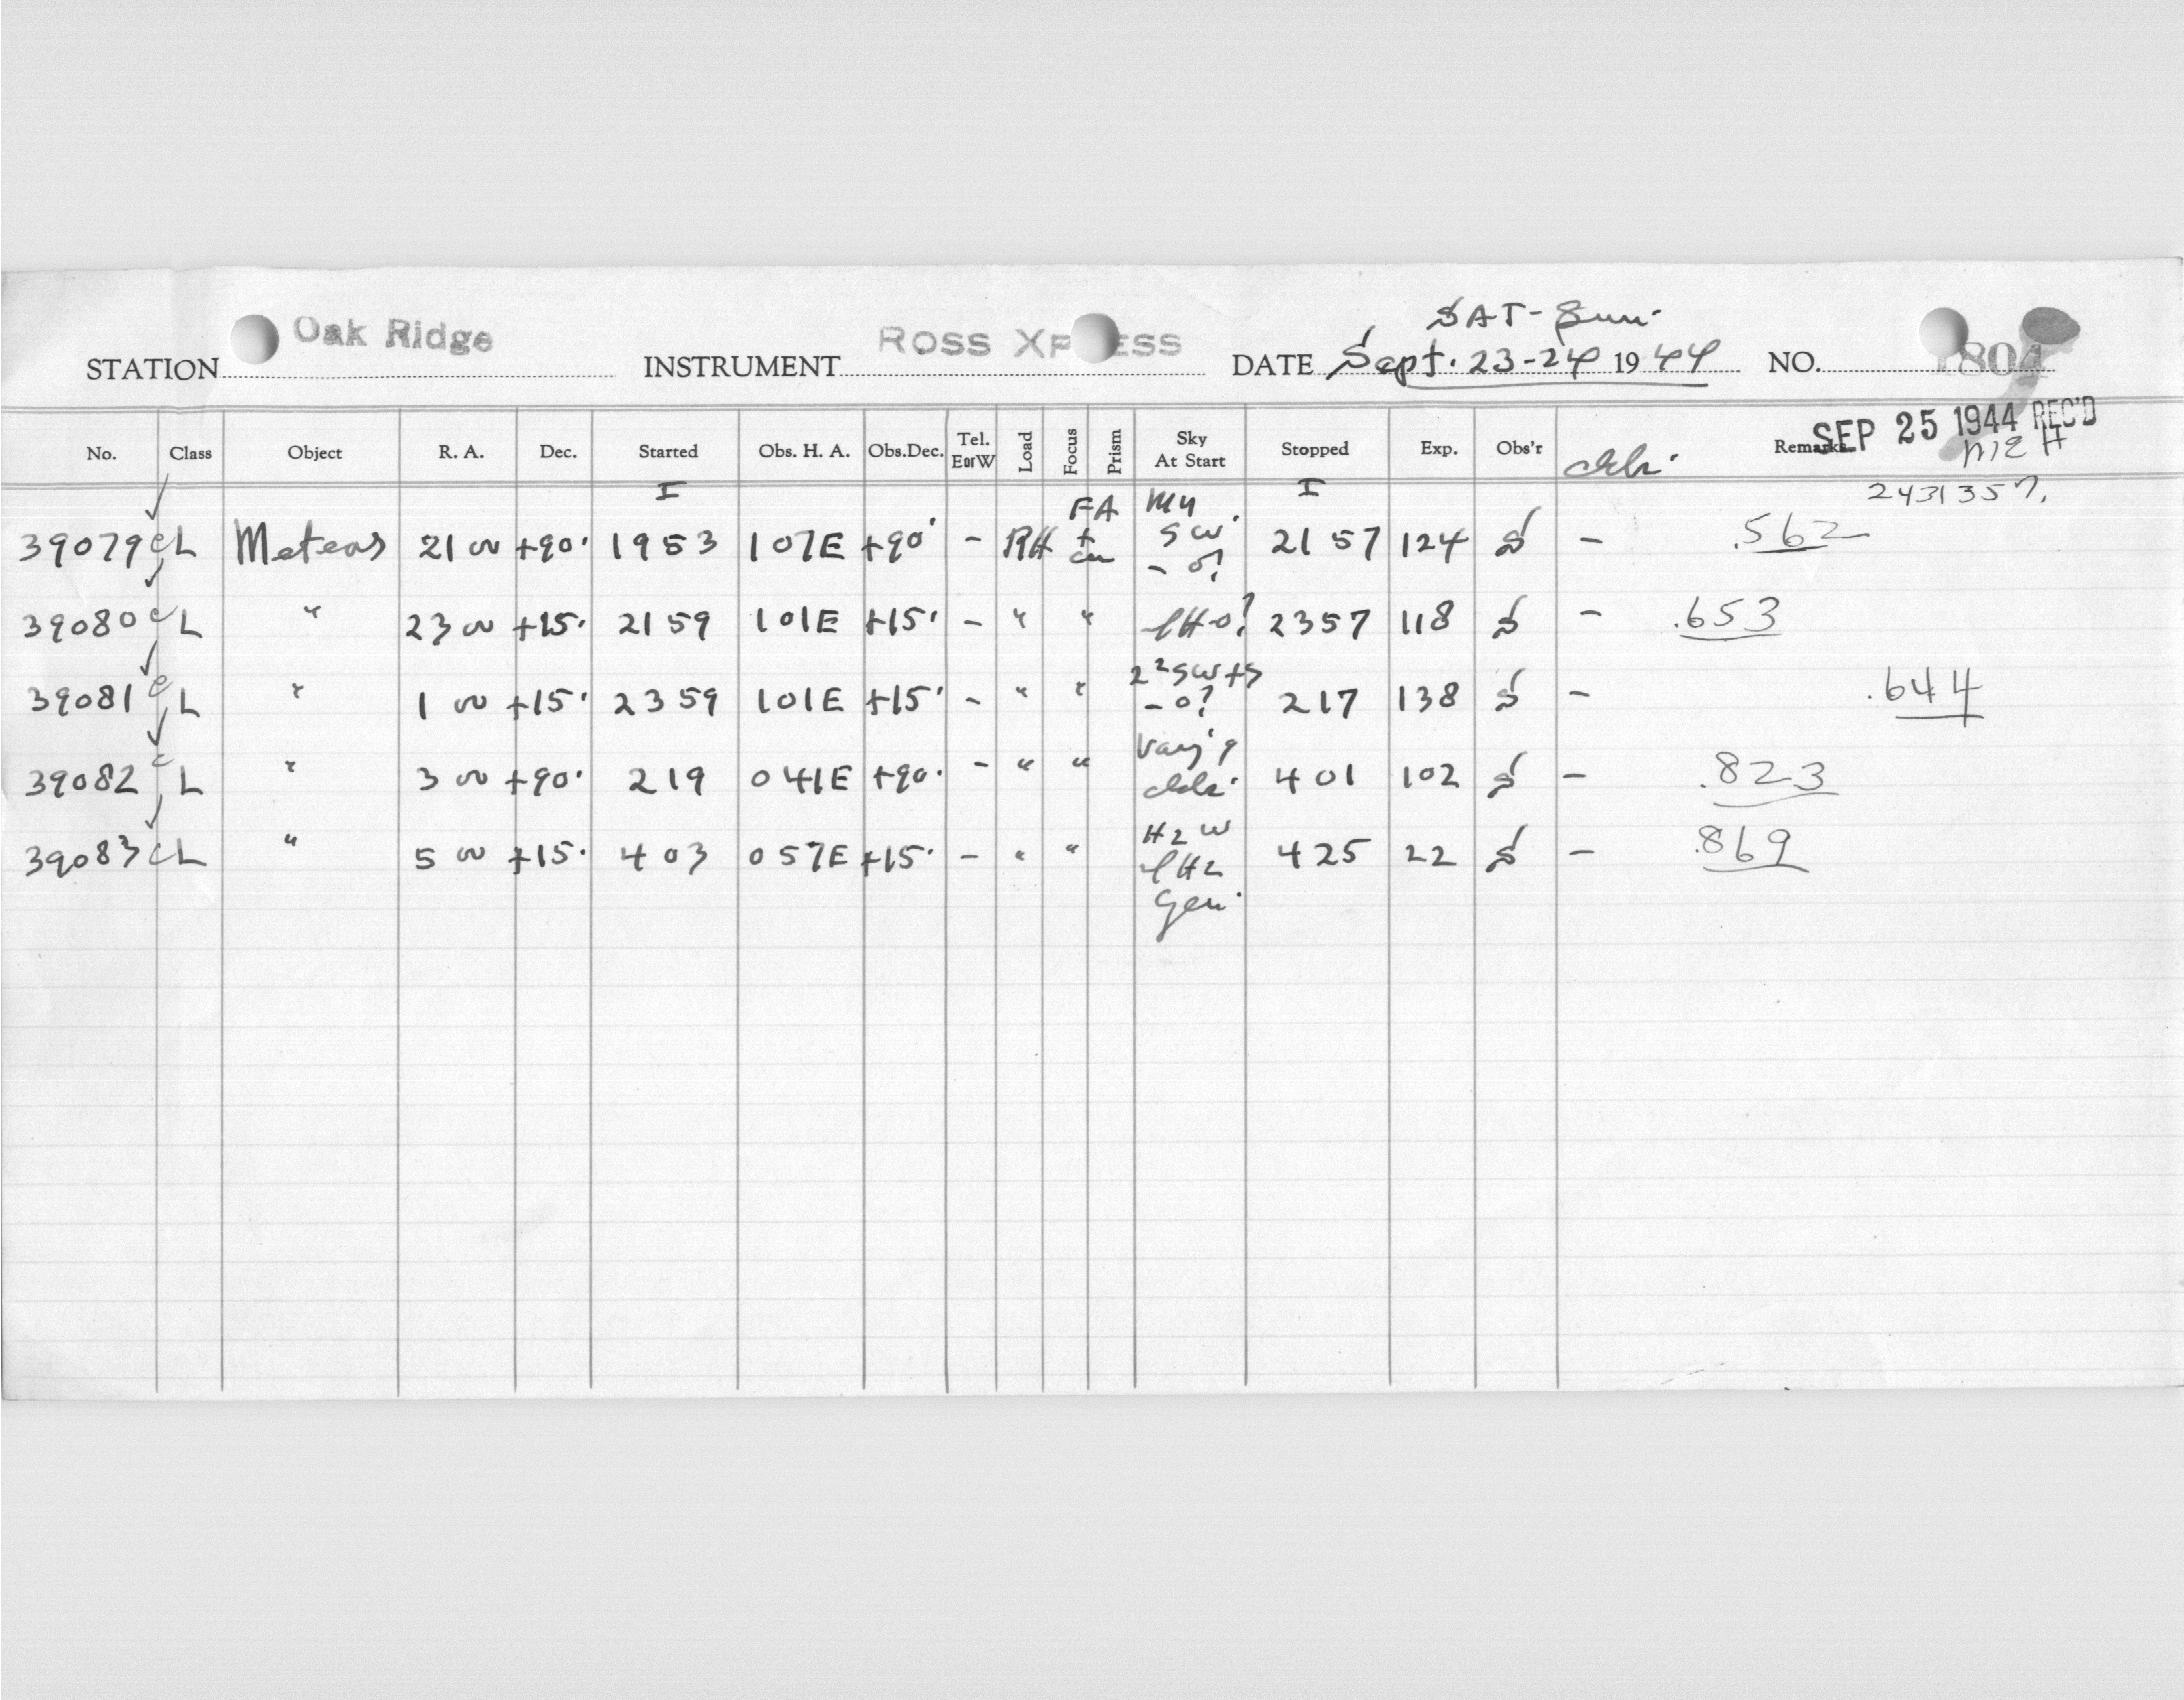 SAT-Sun.
STATION Oak Ridge INSTRUMENT ROSS XPRESS DATE Sept. 23-24 1944 NO. 1804
SEP 25 1944 REC'D
No. Class Object R. A. Dec. Started Obs. H. A. Obs.Dec. Tel. E or W Load Focus Prism Sky At Start Stopped Exp. Obs'r Remarks
I I 2431357.
39079 c L Meteors 21 00 +90. 1953 107E +90 - RH FA + cu My SW. - 0? 2157 124 S - .562
39080 c L " 23 00 +15. 2159 101E +15. - " " 2357 118 S - .653
39081 c L " 1 00 +15. 2359 101E +15. - " " 2²SW+S - 0? 217 138 S - .644
39082 c L " 3 00 +90. 219 041E +90. - " " Vary'g 401 102 S - .823
39083 c L " 5 00 +15. 403 057E +15. - " " H2 W Gen. 425 22 S - .869